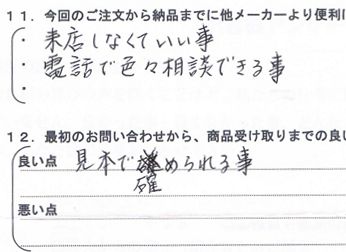 11．今回のご注文から納品までに他メーカーより便利
・来店しなくていい事
・電話で色々相談できる事
・
12．最初のお問い合わせから、商品受け取りまでの良い
良い点 見本で確められる事
悪い点